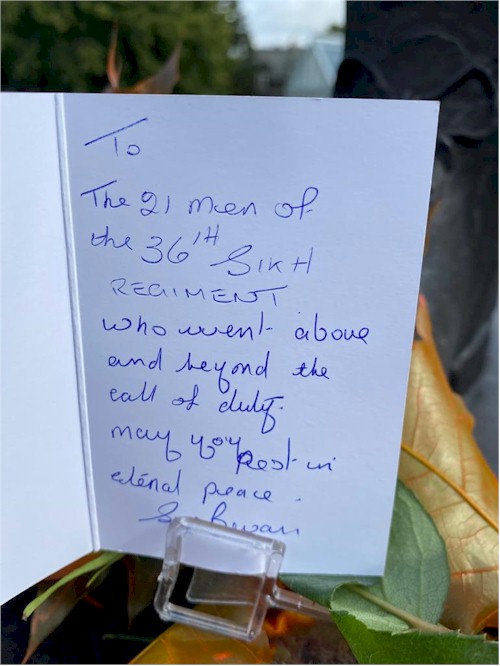 To
The 21 men of
the 36TH SIKH
REGIMENT
who went above
and beyond the
call of duty.
may you rest in
eternal peace.